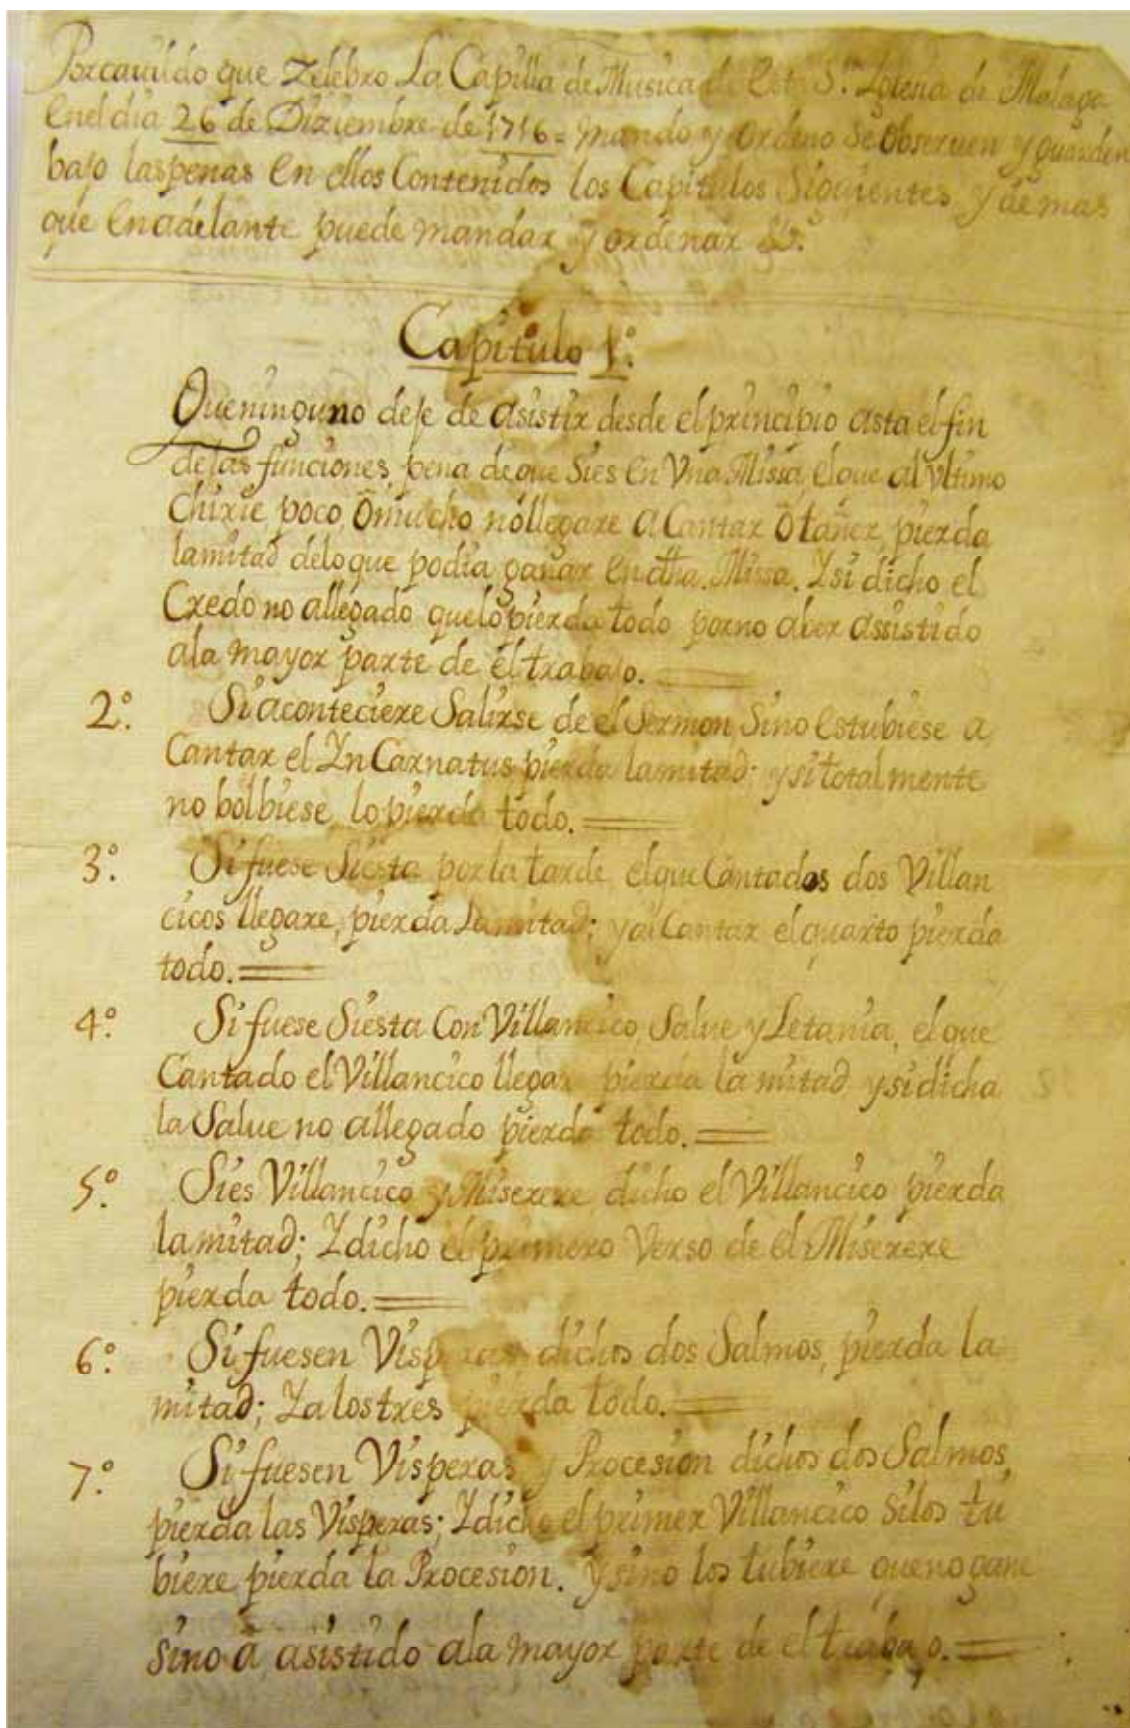 Por cavildo que Zelebro La Capilla de Musica de esta Sta. Iglesia de Malaga
en el dia 26 de Diziembre de 1716 = mando y ordeno se obseruen y guarden
bajo las penas en ellos Contenidos los Capitulos Siguientes y demas
que en adelante puede mandar y ordenar &c.
Capitulo 1º.
Que ninguno deje de asistir desde el principio asta el fin
de las funciones, pena de que Si es en Vna Missa, el que al Vltimo
Chirie poco, ô mucho no llegare a Cantar ô tañer, pierda
la mitad de lo que podia ganar en dha. Missa. Y si dicho el
Credo no a llegado que lo pierda todo por no aber assistido
a la mayor parte de el trabajo.
2º. Si aconteciere Salirse de el Sermon Sino estubiese a
Cantar el Yn Carnatus pierda la mitad; y si totalmente
no bolbiese lo pierda todo.
3º. Si fuese Siesta por la tarde el que Cantados dos Villan
cicos llegare, pierda La mitad; y al Cantar el quarto pierda
todo.
4º. Si fuese Siesta Con Villancico Salue y Letania, el que
Cantado el Villancico llegare pierda la mitad y si dicha
la Salue no a llegado pierda todo.
5º. Si es Villancico y Miserere dicho el Villancico pierda
la mitad; Y dicho el primero Verso de el Miserere
pierda todo.
6º. Si fuesen Visperas dichos dos Salmos, pierda la
mitad; Y a los tres pierda todo.
7º. Si fuesen Visperas y Procesion dichos dos Salmos,
pierda las Visperas; Y dicho el primer Villancico Si los tu
biere pierda la Procesion. Y sino los tubiere que no gane
sino â asistido a la mayor parte de el trabajo.